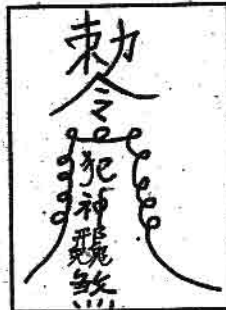 勅
令
犯
神
煞